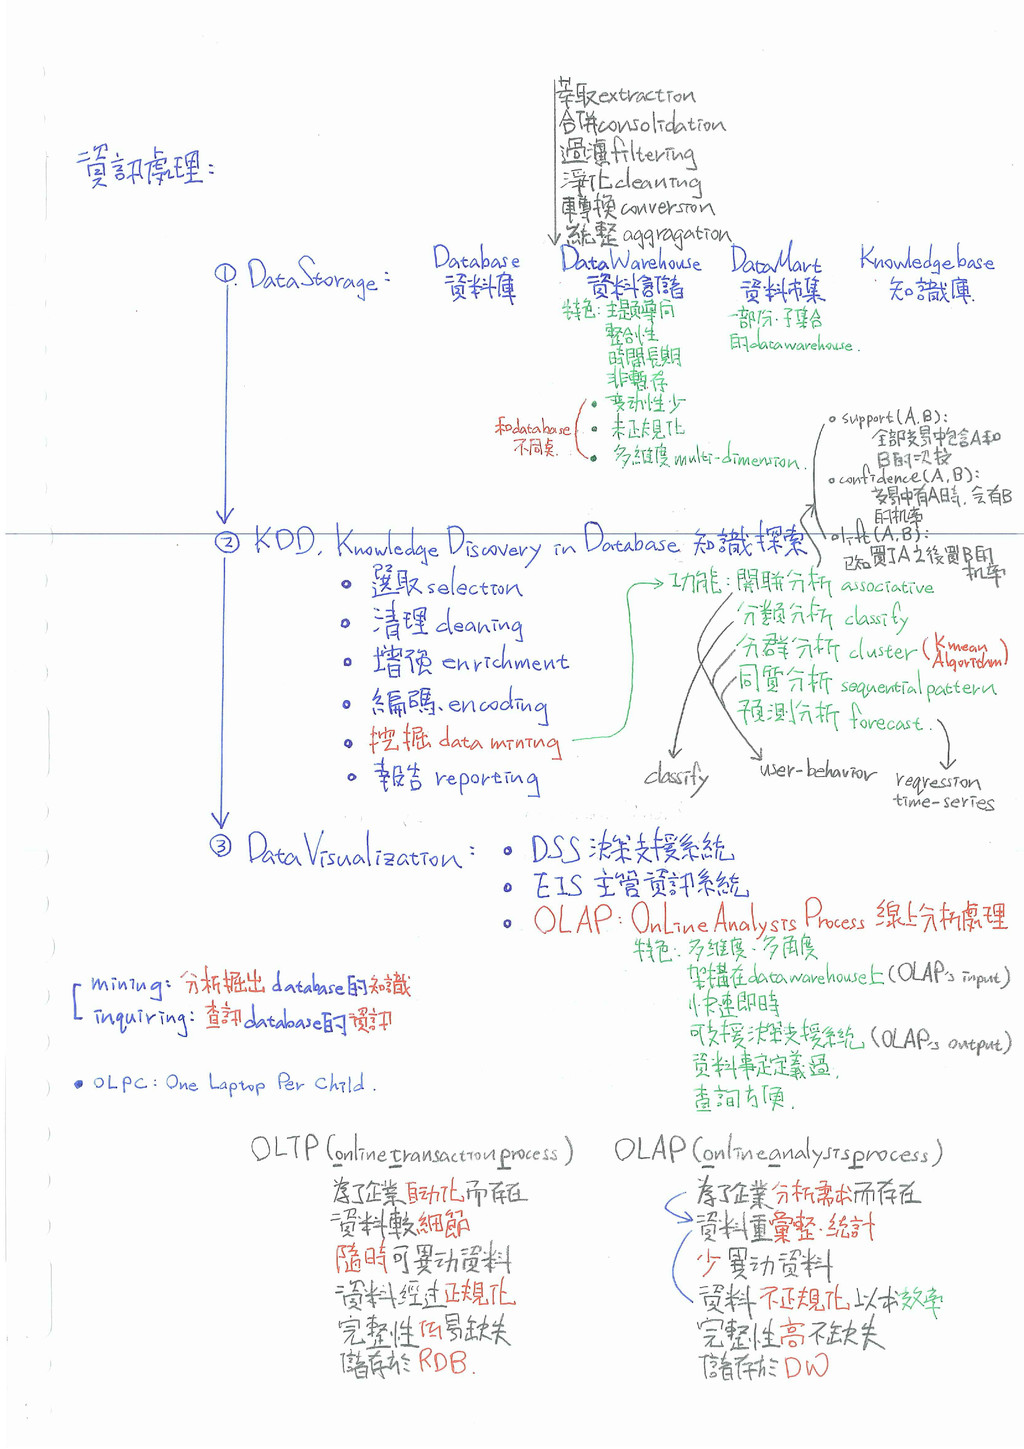 萃取extraction
合併consolidation
過濾filtering
淨化cleaning
轉換conversion
統整aggragation
資訊處理:
① Data Storage:
Database
資料庫
Data Warehouse
資料倉儲
特色:主題導向
整合性
時間長期
非暫存
• 变动性少
• 未正規化
• 多維度multi-dimension.
和database
不同点.
Data Mart
資料市集
一部份.子集合
的datawarehouse.
Knowledgebase
知識庫
② KDD, Knowledge Discovery in Database 知識探索
• 選取selection
• 清理cleaning
• 增強enrichment
• 編碼encoding
• 挖掘data mining
• 報告reporting
功能:關聯分析associative
分類分析classify
分群分析cluster (Kmean
Algorithm)
同質分析sequential pattern
預測分析forecast.
support(A,B):
全部交易中包含A和
B的次校
confidence(A,B):
交易中有A時,会有B
的机率
lift(A,B):
已知買了A之後買B的
机率
classify
user-behavior
regression
time-series
③ Data Visualization:
• DSS 決策支援系統
• EIS 主管資訊系統
• OLAP: OnLine Analysis Process 線上分析處理
特色:多維度.多角度
架構在datawarehouse上(OLAP's input)
快速即時
可支援決策支援系統(OLAP's output)
資料事定定義過.
查詢方便.
mining: 分析掘出database的知識
inquiring: 查訊database的資訊
• OLPC: One Laptop Per Child.
OLTP (online transaction process)
為了企業自动化而存在
資料較細節
隨時可異动資料
資料經过正規化
完整性低易缺失
儲存於RDB.
OLAP (online analysis process)
為了企業分析需求而存在
資料重彙整.統計
少異动資料
資料不正規化以求效率
完整性高不缺失
儲存於DW